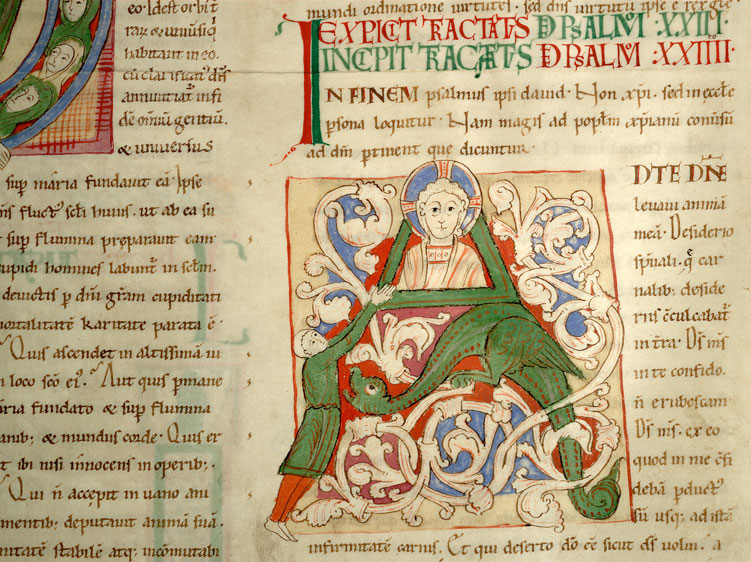 eo. Idest orbis t̄
raꝝ & uniuersiq̨
habitant in eo.
cū clarificat᷒ dn̄s
annuntiat᷒ in fi
de om̄iū gentiū.
& uniuersus
sup̱ maria fundauit eā. Ipse
fluct᷒ sc̄li huius. ut ab ea su
sup̱ flumina preparauit eam
cupidi homines labunt᷒ in sc̄lm.
deuictis p̱ dn̄m gr̄am cupiditati
mortalitatē karitate parata ē.
Quis ascendet in altissimā iu
in loco sc̄o ei᷒. Aut quis p̱mane
maria fundato & sup̱ flumina
manib; & mundus corde. Quis er
ibi nisi innocens in operib;.
Qui n̄ accepit in uano ani
mentib; deputauit animā suā.
stabilē atq; incōmutabi
mundi ordinatione uirtutē. sed dn̄s uirtutū ipse ē rex
EXPLICT TRACTAT᷒S D̄ PSALM̄ .XXIII.
INCIPIT TRACTAT᷒S D̄ PSALM̄ :XXIIII.
IN FINEM psalmus ipsi dauid. Non xp̄i. sed in eccl̄e
p̱sona loquitur. Nam magis ad popl̄m xp̄ianū conuersū
ad dn̄m p̱tinent que dicuntur.
AD TE DN̄E
leuaui animā
meā. Desiderio
spūali. q̄ car
nalib; deside
riis c̄culcabat᷒
in t̄ra. Ds̄ m̄s
in te confido.
n̄ erubescam
Ds̄ m̄s. ex eo
quod in me c̄fi
debā p̱duct᷒
sū usq; ad istā
infirmitatē carnis. Et qui deserto dō ēē sicut ds̄ uolui. a